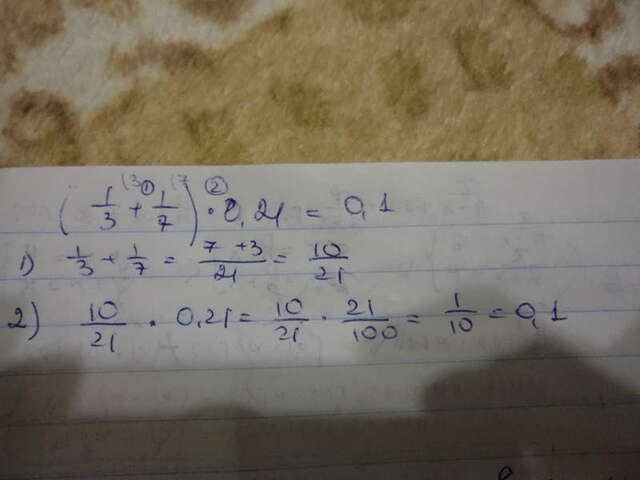 (1/3 + 1/7) · 0,21 = 0,1
1) 1/3 + 1/7 = 7+3/21 = 10/21
2) 10/21 · 0,21 = 10/21 · 21/100 = 1/10 = 0,1